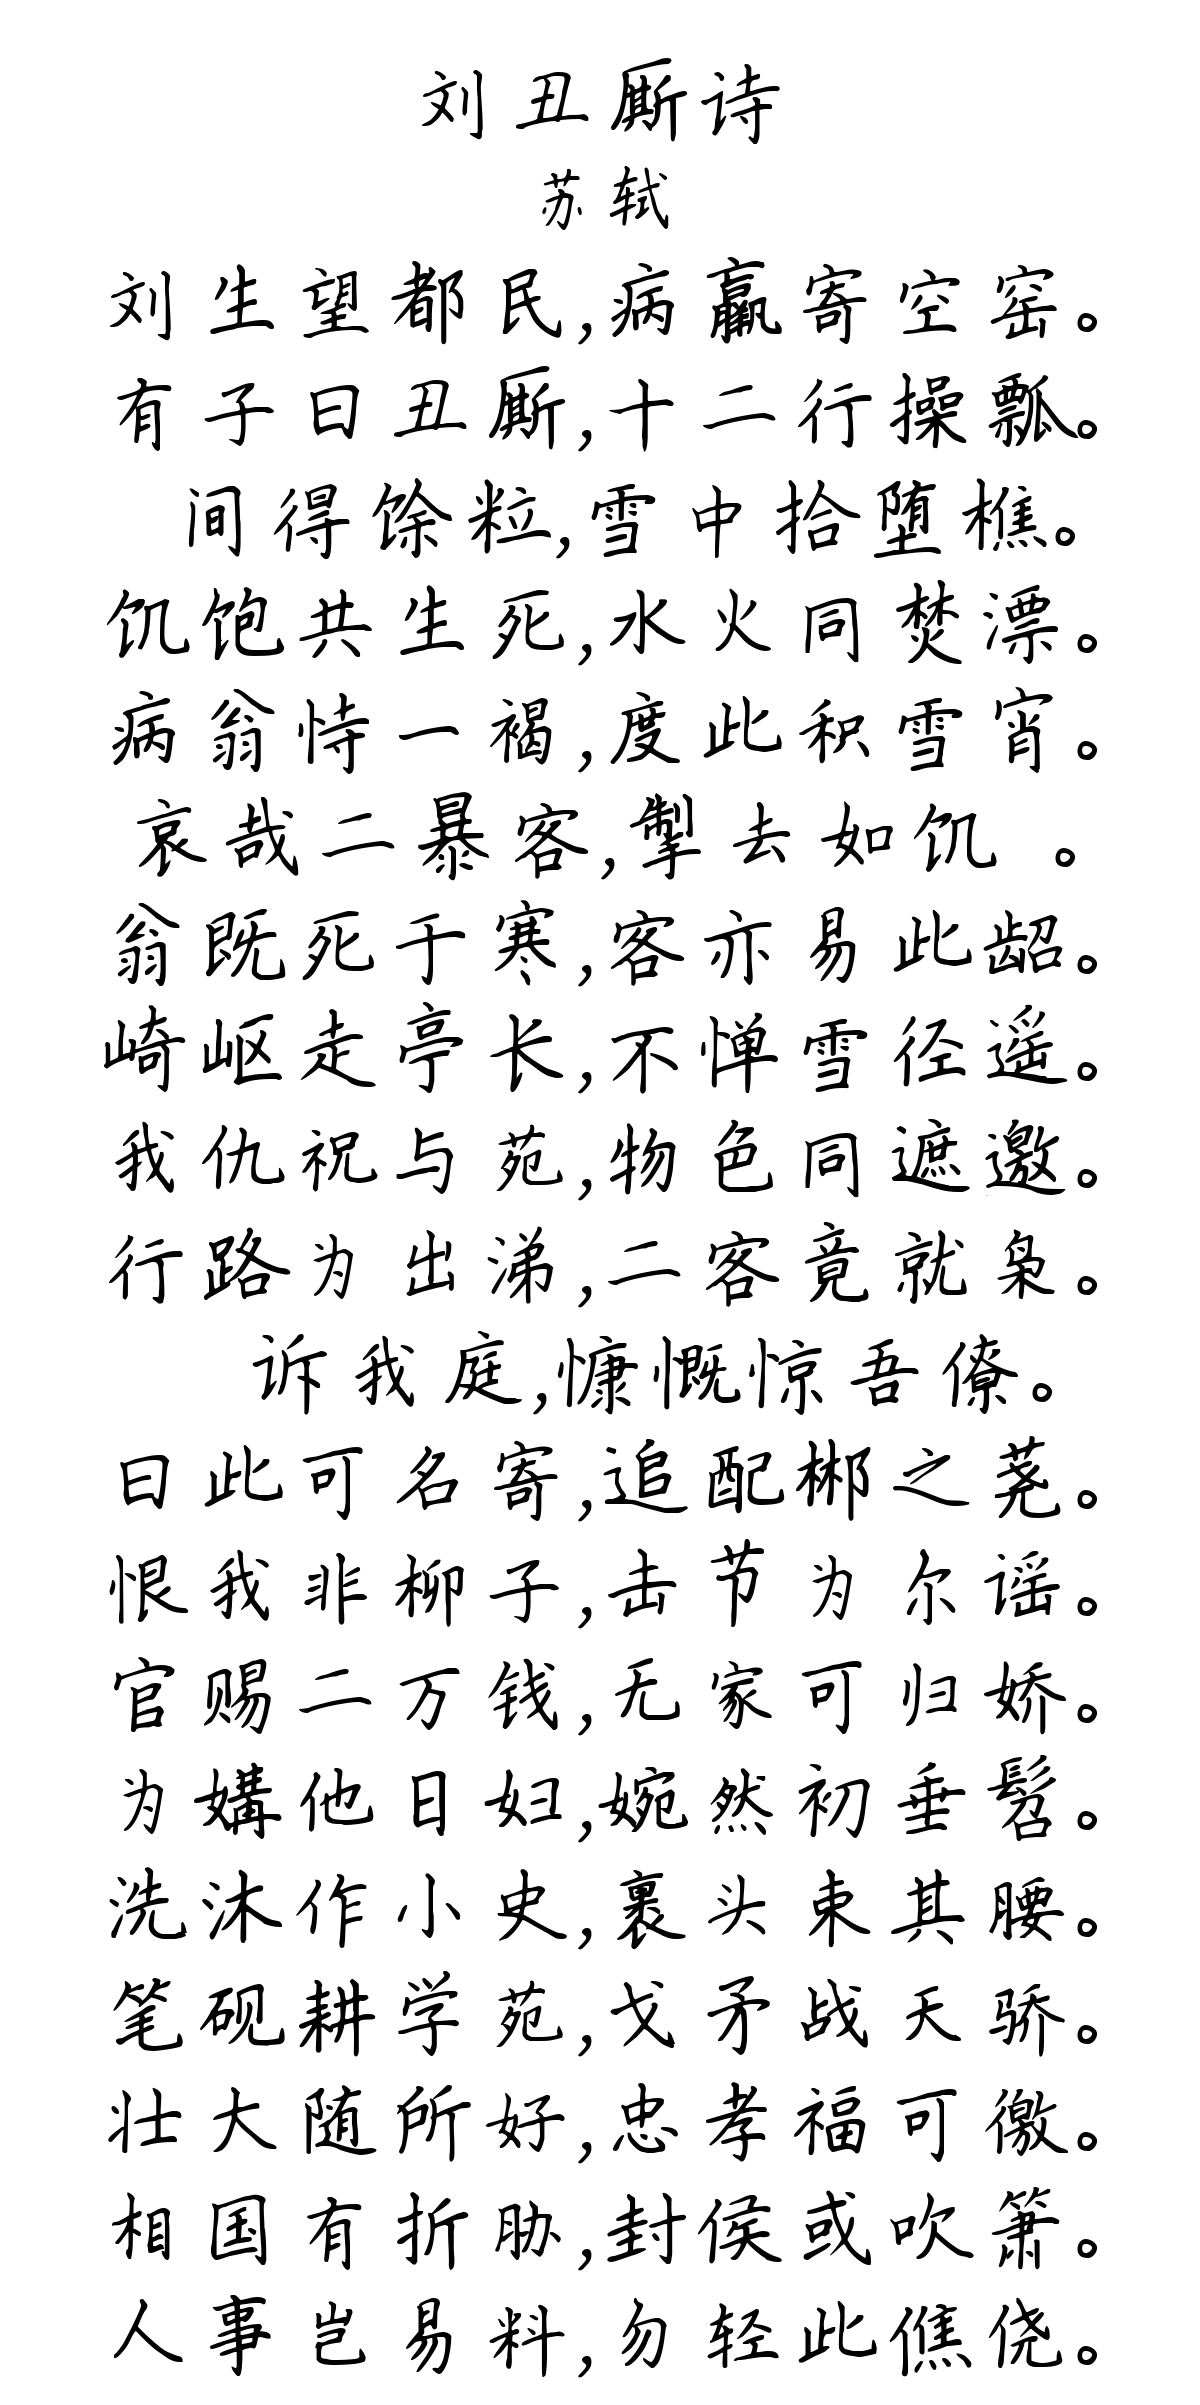 刘丑厮诗
苏轼
刘生望都民,病羸寄空窑。
有子曰丑厮,十二行操瓢。
间得馀粒,雪中拾堕樵。
饥饱共生死,水火同焚漂。
病翁恃一褐,度此积雪宵。
哀哉二暴客,掣去如饥 。
翁既死于寒,客亦易此龆。
崎岖走亭长,不惮雪径遥。
我仇祝与苑,物色同遮邀。
行路为出涕,二客竟就枭。
诉我庭,慷慨惊吾僚。
曰此可名寄,追配郴之荛。
恨我非柳子,击节为尔谣。
官赐二万钱,无家可归娇。
为媾他日妇,婉然初垂髫。
洗沐作小史,裹头束其腰。
笔砚耕学苑,戈矛战天骄。
壮大随所好,忠孝福可徼。
相国有折胁,封侯或吹箫。
人事岂易料,勿轻此僬侥。